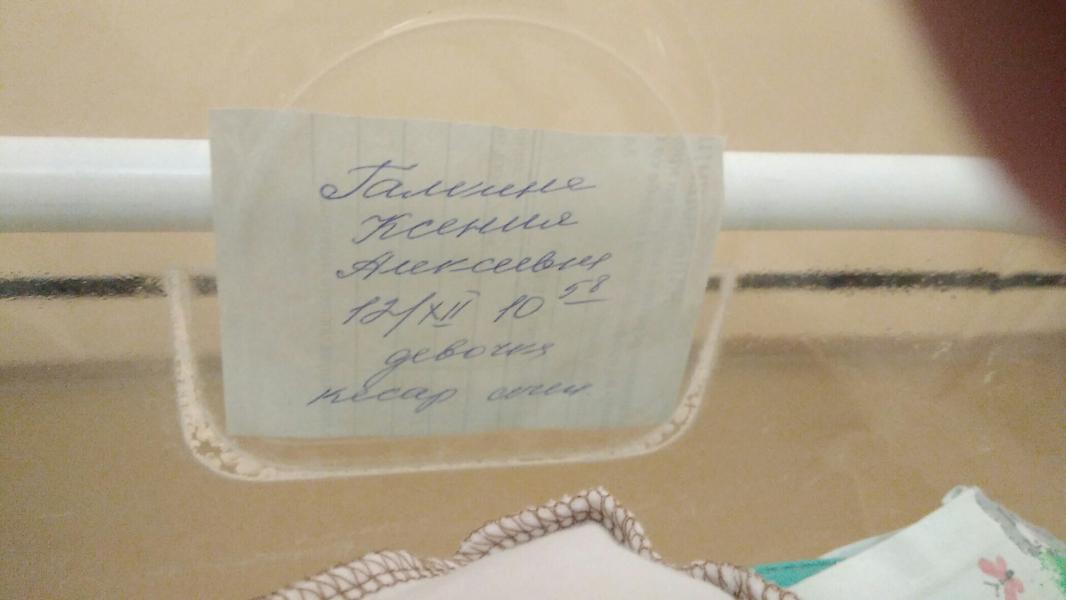 Галкина
Ксения
Алексеевна
12/XII 10 58
девочка
кесар сечен